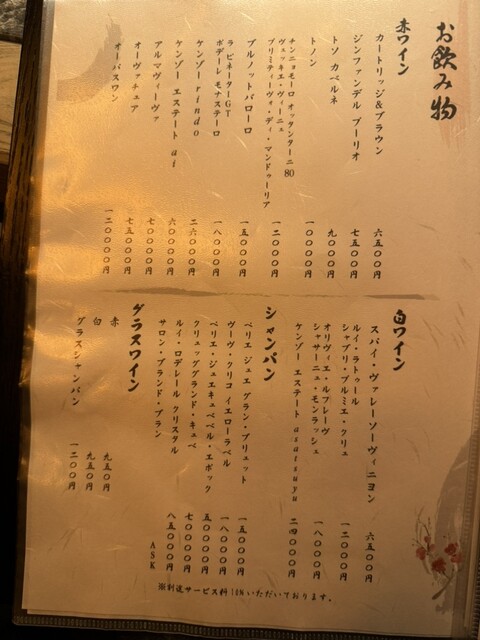 お飲み物
赤ワイン
カートリッジ&ブラウン 六五〇〇円
ジンファンデル ブーリオ 七五〇〇円
トソ カベルネ 九〇〇〇円
トノン 一〇〇〇〇円
チンニョモーロ オッタンターニ80
ヴェッキエ・ヴィーニュ・
プリミティーヴォ・ディ・マンドゥーリア 一二〇〇〇円
ブルノットバローロ 一五〇〇〇円
ラピネーターGT
ボデーレ モナステーロ 一八〇〇〇円
ケンゾー rindo 二六〇〇〇円
ケンゾー エステート ai 六〇〇〇〇円
アルマヴィーヴァ 七〇〇〇〇円
オーヴァチュア 七五〇〇〇円
オーパスワン 一二〇〇〇〇円
白ワイン
スパイ・ヴァレーソーヴィニヨン 六五〇〇円
ルイ・ラトゥール
シャブリ・プルミエ・クリュ 一二〇〇〇円
オリヴィエ・ルフレーヴ
シャサーニュ・モンラッシェ 一八〇〇〇円
ケンゾー エステート asatsuyu 二四〇〇〇円
シャンパン
ペリエ ジュエ グラン・ブリュット 一五〇〇〇円
ヴーヴ・クリコ イエローラベル 一八〇〇〇円
ペリエ・ジュエキュベベル・エポック 五〇〇〇〇円
クリュッググランド・キュベ 七〇〇〇〇円
ルイ・ロデレール クリスタル 八五〇〇〇円
サロン・ブランド・ブラン ASK
グラスワイン
赤 九五〇円
白 九五〇円
グラスシャンパン 一二〇〇円
※別途サービス料10%いただいております。